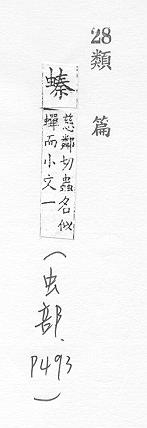 28
類篇
螓
慈鄰切蟲名似
蟬而小文一
(虫部.
P493)